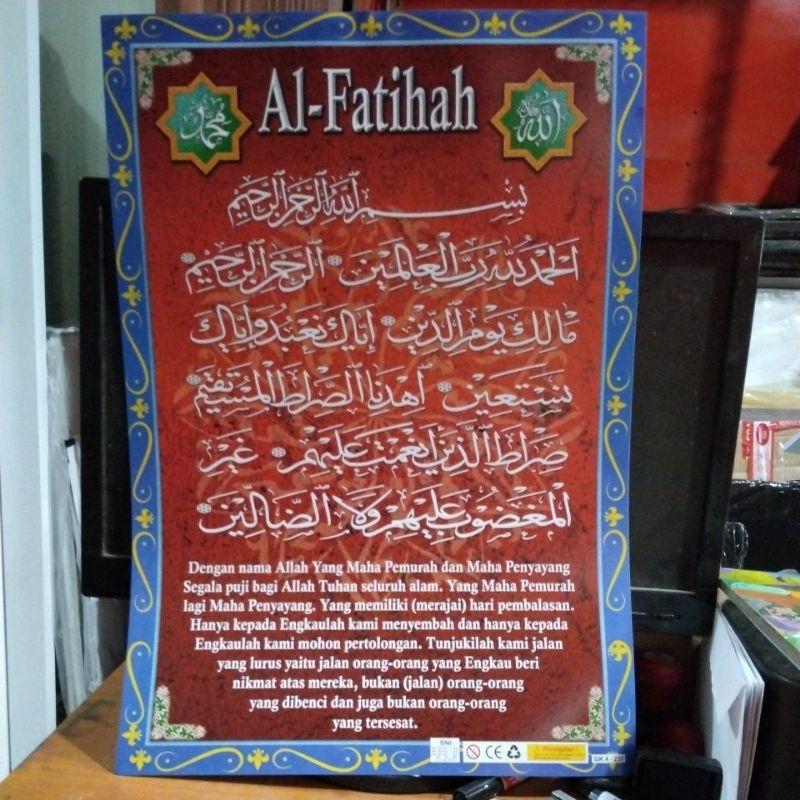 Al-Fatihah
محمد
الله
بسم الله الرحمن الرحيم
الحمد لله رب العالمين * الرحمن الرحيم *
مالك يوم الدين * إياك نعبد وإياك
نستعين * اهدنا الصراط المستقيم *
صراط الذين أنعمت عليهم * غير
المغضوب عليهم ولا الضالين *
Dengan nama Allah Yang Maha Pemurah dan Maha Penyayang
Segala puji bagi Allah Tuhan seluruh alam. Yang Maha Pemurah
lagi Maha Penyayang. Yang memiliki (merajai) hari pembalasan.
Hanya kepada Engkaulah kami menyembah dan hanya kepada
Engkaulah kami mohon pertolongan. Tunjukilah kami jalan
yang lurus yaitu jalan orang-orang yang Engkau beri
nikmat atas mereka, bukan (jalan) orang-orang
yang dibenci dan juga bukan orang-orang
yang tersesat.
SNI
CE
Peringatan !